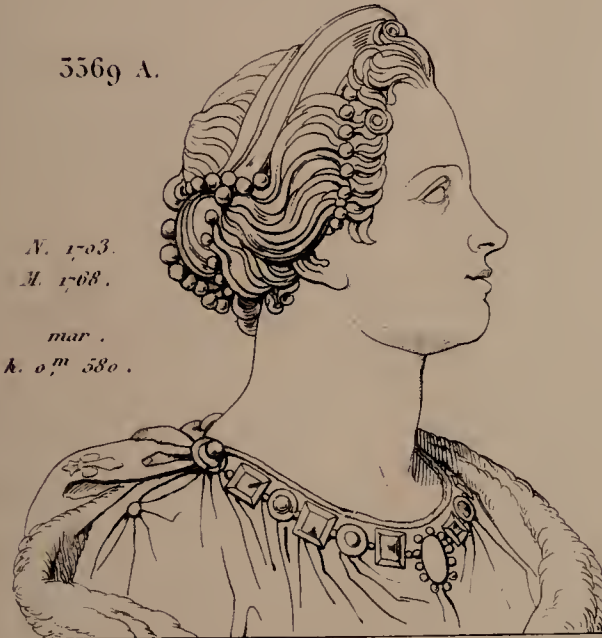 3369 A.
N. 1703.
M. 1768.
mar.
h. 0,ᵐ 580.